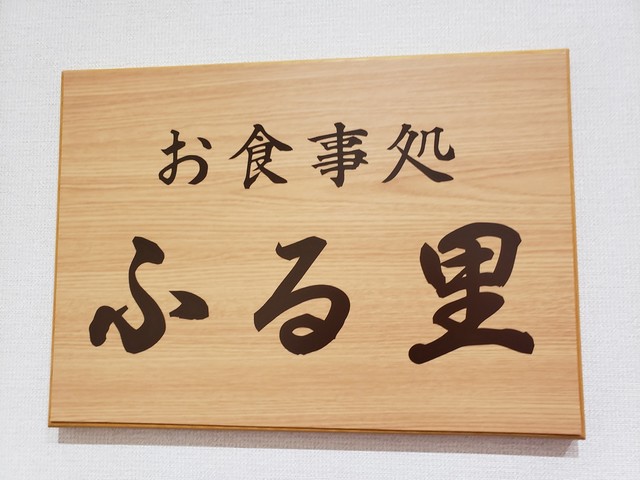 お食事処
ふる里